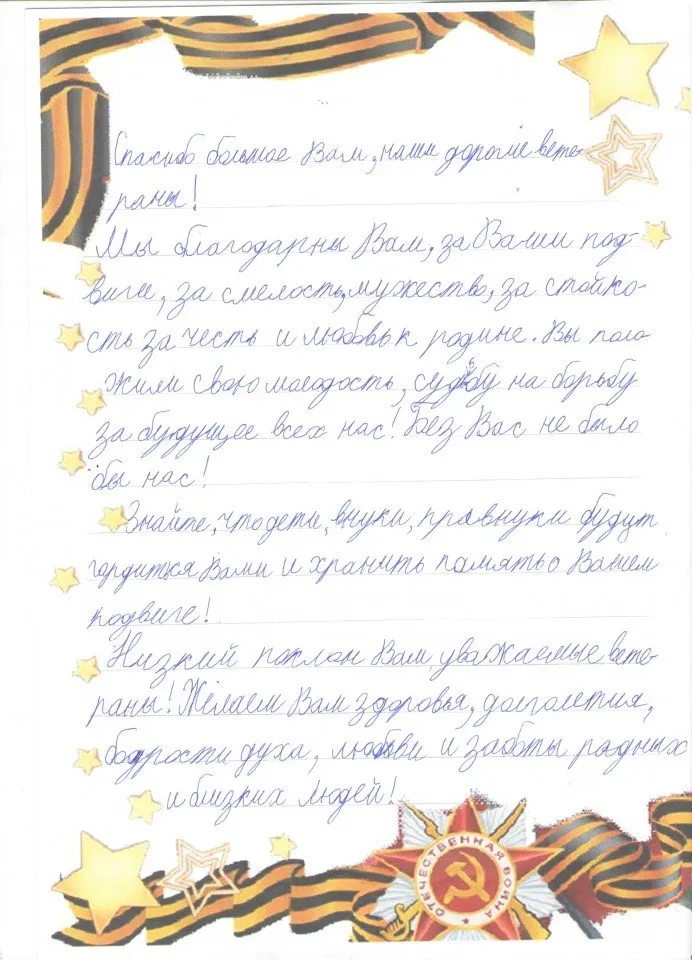 Спасибо большое Вам, наши дорогие вете-
раны!
Мы благодарны Вам, за Ваши под-
виги, за смелость, мужество, за стойко-
сть за честь и любовь к родине. Вы поло
жили свою молодость, судьбу на борьбу
за будущее всех нас! Без Вас не было
бы нас!
Знайте, что дети, внуки, правнуки будут
гордиться Вами и хранить память о Вашем
подвиге!
Низкий поклон Вам уважаемые вете-
раны! Желаем Вам здоровья, долголетия,
бодрости духа, любви и заботы родных
и близких людей!
ОТЕЧЕСТВЕННАЯ ВОЙНА